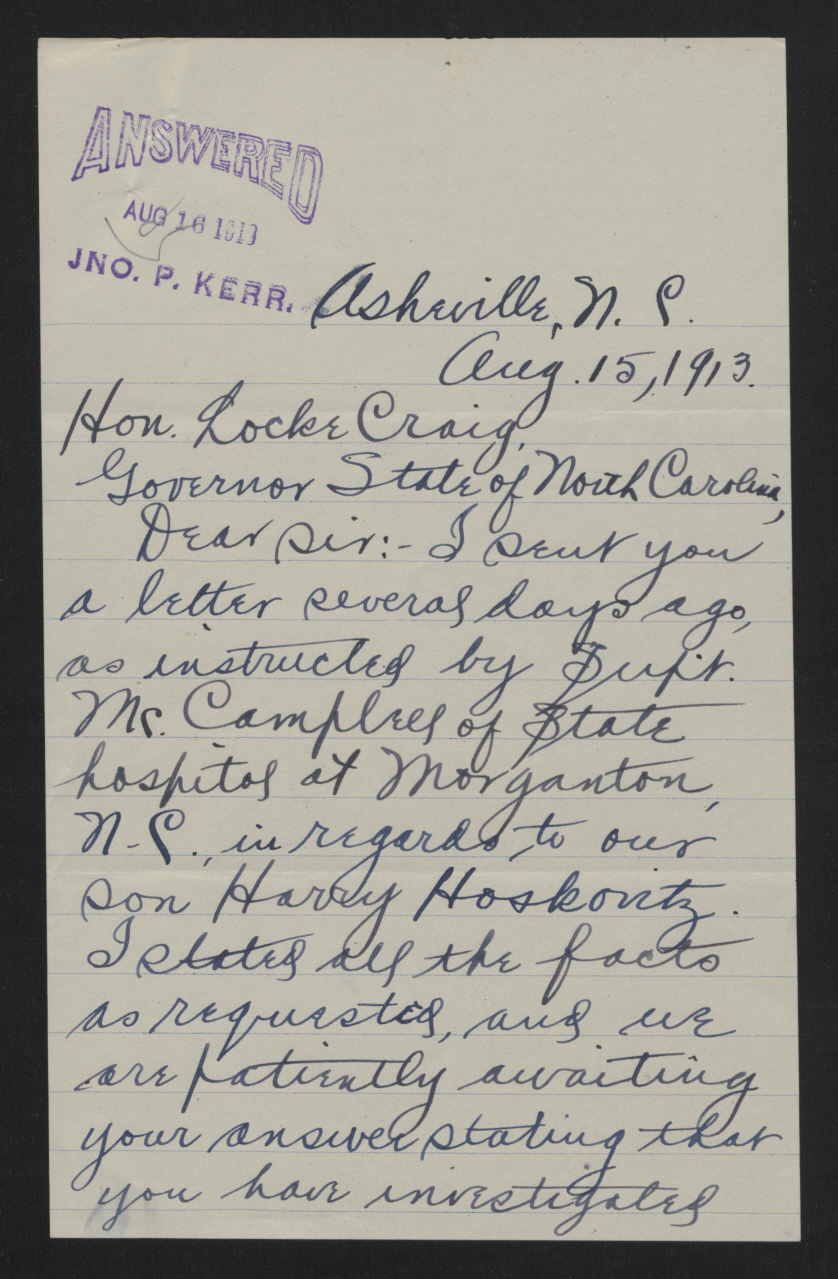 ANSWERED
AUG 16 1913
JNO. P. KERR.
Asheville, N. C.
Aug. 15, 1913.
Hon. Locke Craig,
Governor State of North Carolina,
Dear Sir:- I sent you
a letter several days ago,
as instructed by Supt.
Mc. Campbell of State
hospital at Morganton,
N. C., in regards to our
son Harry Hoskovitz.
I stated all the facts
as requested, and we
are patiently awaiting
your answer stating that
you have investigated